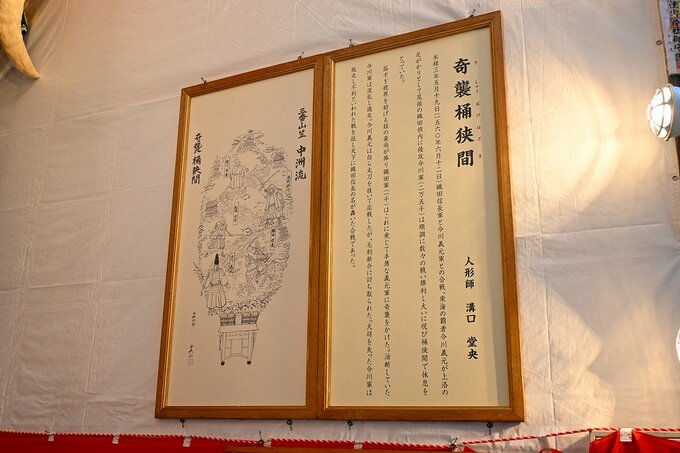 奇襲桶狭間
き しゅう おけ は ざ ま
人形師 溝口 堂央
永禄三年五月十九日(一五六〇年六月十二日)織田信長軍と今川義元軍との合戦、東海の覇者今川義元が上洛の
足がかりとして尾張の織田領内に侵攻今川軍(二万五千)は順調に数々の戦い勝利し大いに悦び桶狭間で休息を
とっていた。
昼すぎ視界を妨げる程の豪雨が降り織田軍(二千)はこれに乗じて手薄な義元軍に奇襲をかけた。油断していた
今川軍は混乱し逃走、今川義元は自ら太刀を抜いて応戦したが、毛利新介に討ち取られた。大将を失った今川軍は
敗走し不利といわれた戦を征し天下に織田信長の名が轟いた合戦であった。
三番山笠 中洲流
奇襲桶狭間